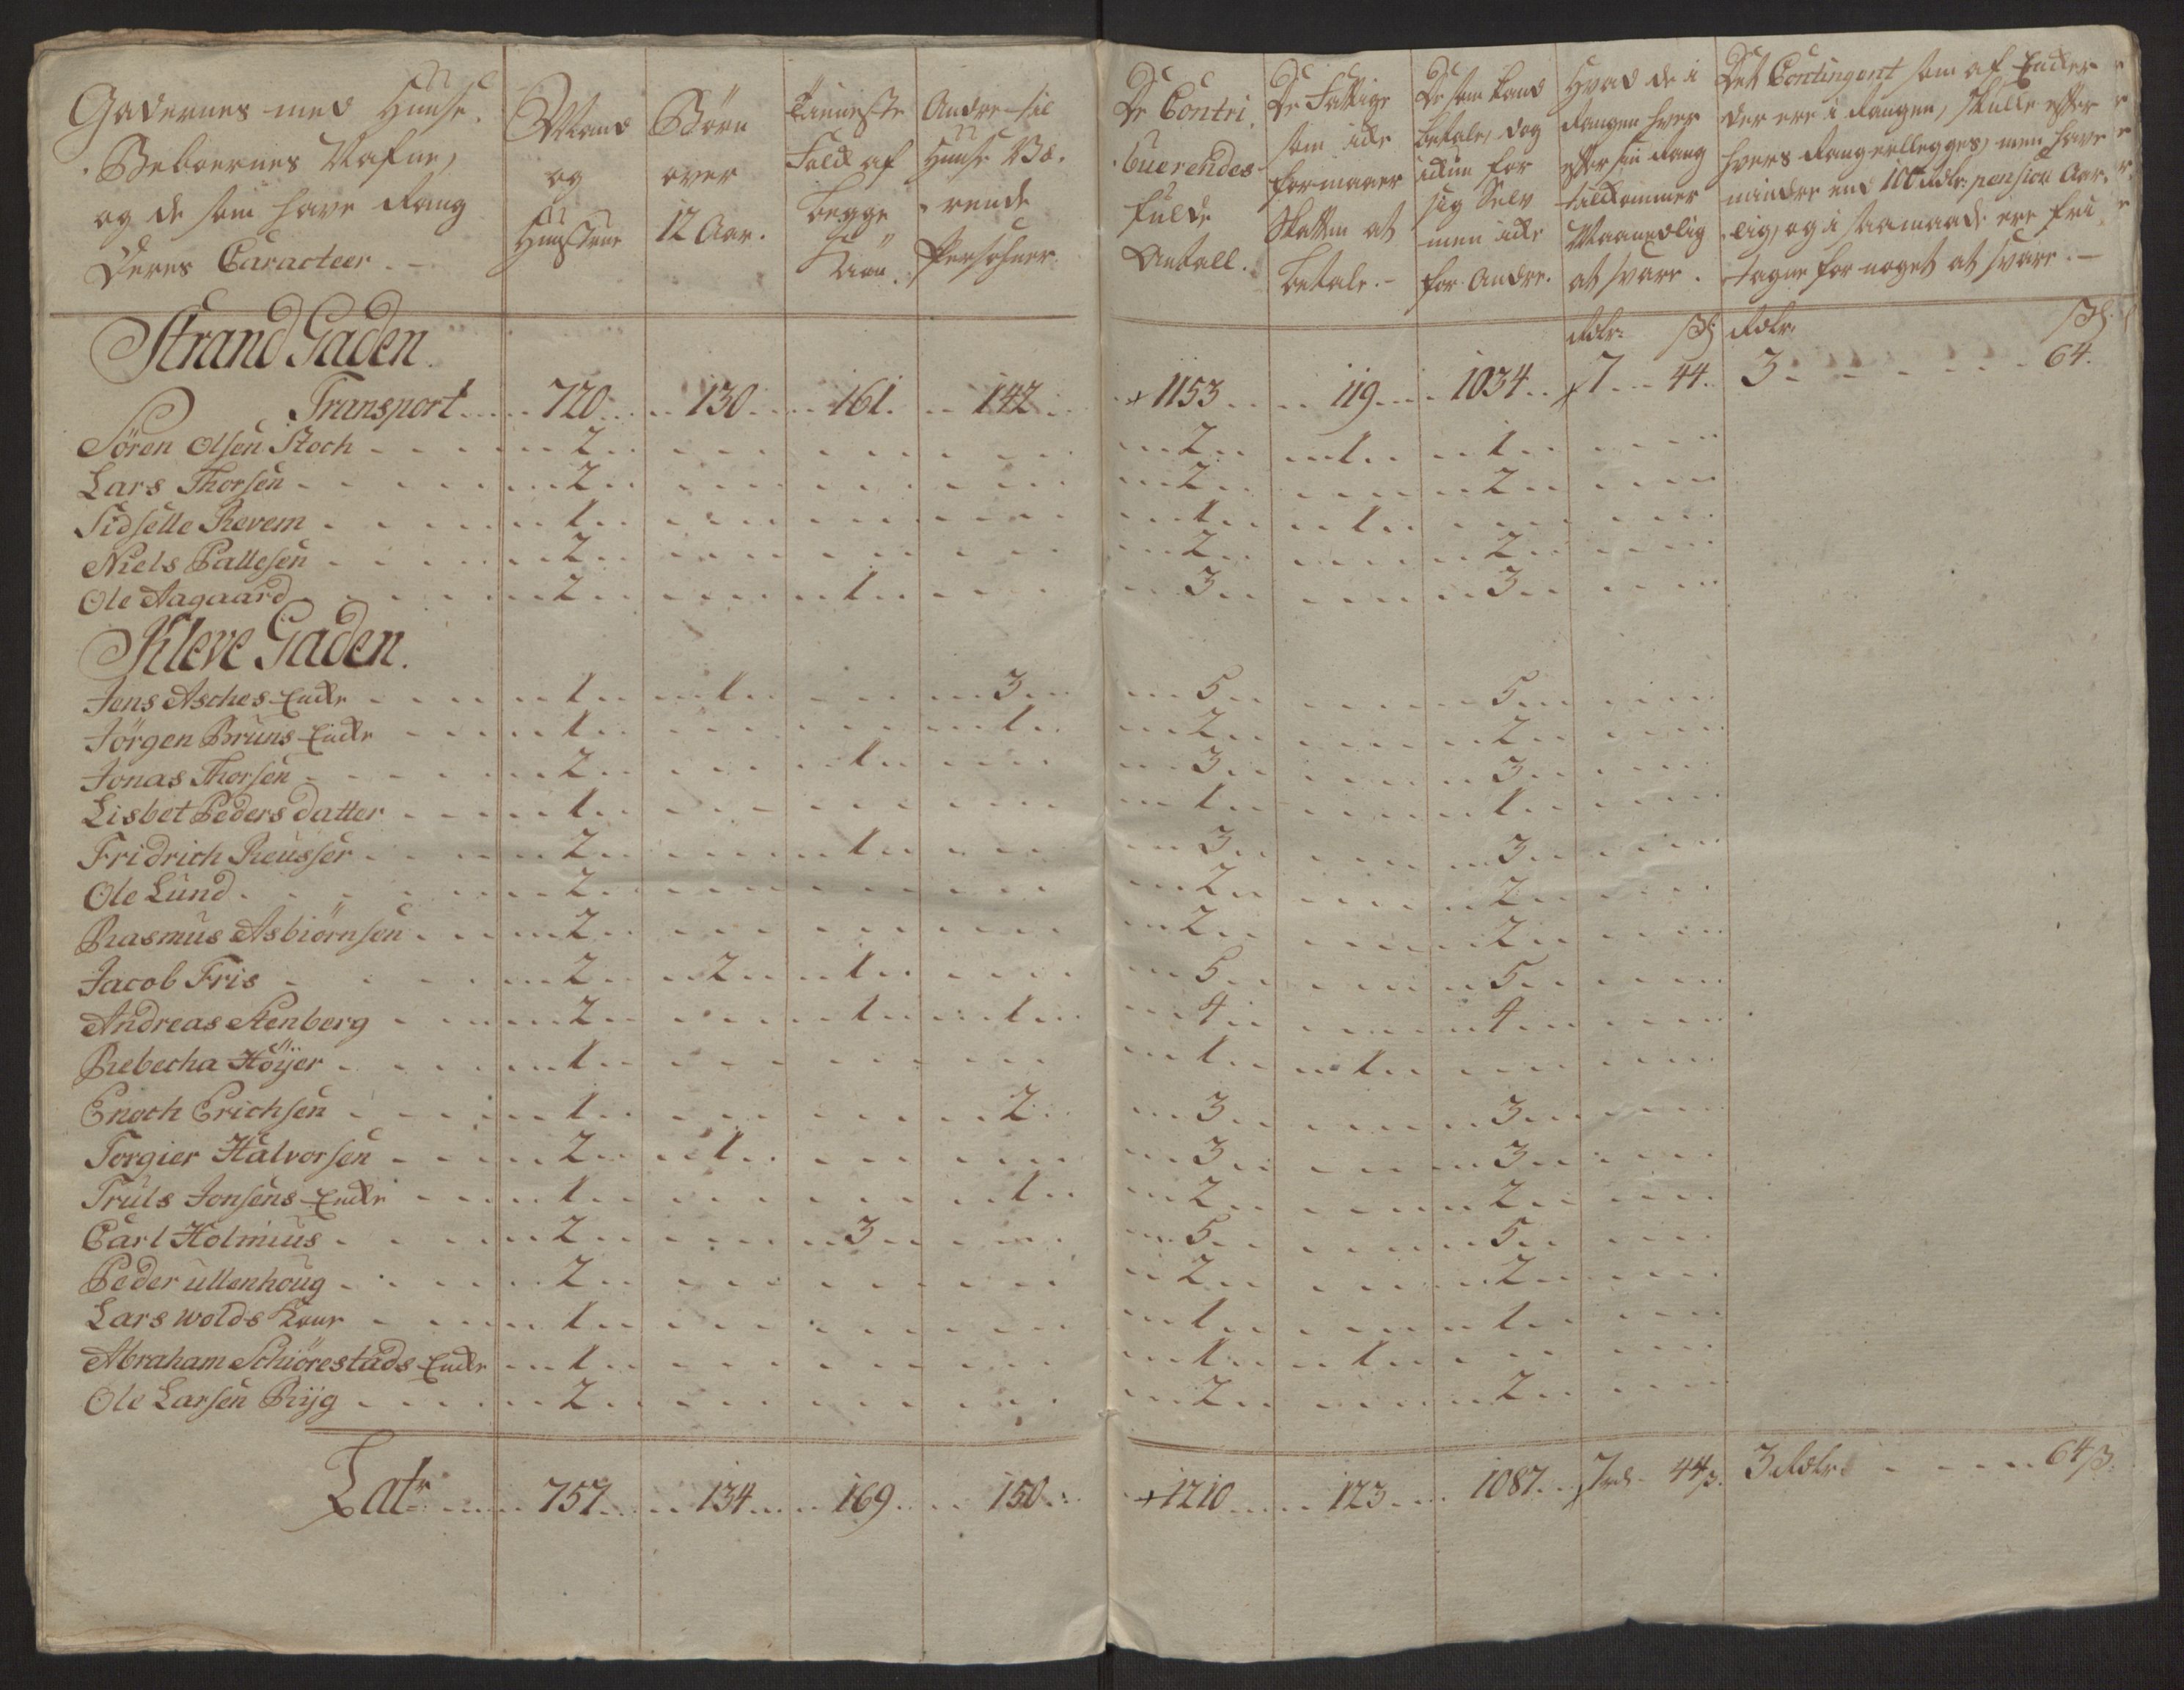 Gadernes med Huuse.
Beboernes Nafne,
og de som have Rang
Deres Caracteer. -
Mand
og
Hustrue
Börn
over
12 Aar.
Tienneste
Folck af
begge
Kiön.
Andre til
Huuse Væ-
rende
Persohner
De Contri-
buerendes
fulde
Antall.
De Fattige
som icke
formaaer
Skatten at
betale. -
De som kand
betale, dog
ickun for
sig Selv
men icke
for Andre.
Hvad de i
Rangen hver
efter sin Rang
tilkommer
Maanedlig
at svare.
Det Contingent som af Encker
der ere i Rangen, skulle efter
hvers Rang erllegges, men have
mindre end 100 Rdlr. pension Aar-
lig, og i saamaade ere fri
tagne for noget at svare. -
Rdlr. ß Rdlr. ß.
Strand Gaden.
Transport 720 130 161 142 1153 119 1034 7 44 3 64.
Sören Olsen Stoch 2 2 1 1
Lars Thorsen 2 2 2
Sidselle Revem 1 1 1
Niels Pallesen 2 2 2
Ole Aagaard 2 1 3 3
Kleve Gaden.
Jens Asches Encke 1 1 3 5 5
Jörgen Bruns Encke 1 1 2 2
Jonas Thorsen 2 1 3 3
Lisbet Peders datter 1 1 1
Fridrich Reusser 2 1 3 3
Ole Lund 2 2 2
Rasmus Asbiörnsen 2 2 2
Jacob Fris 2 2 1 5 5
Andreas Stenberg 2 1 1 4 4
Rebecha Höÿer 1 1 1
Enoch Erichsen 1 2 3 3
Torgier Halvorsen 2 1 3 3
Truls Jonsens Encke 1 1 2 2
Carl Holmius 2 3 5 5
Peder ullenhoug 2 2 2
Lars Wolds Kone 1 1 1
Abraham Schiörestads Encke 1 1 1
Ole Larsen Rÿg 2 2 2
Latr 757 134 169 150 1210 123 1087 7rd 44ß. 3 Rdlr. 64ß.